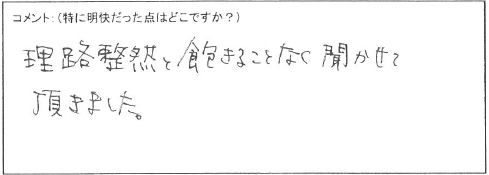 コメント：（特に明快だった点はどこですか？）
理路整然と飽きることなく聞かせて
頂きました。